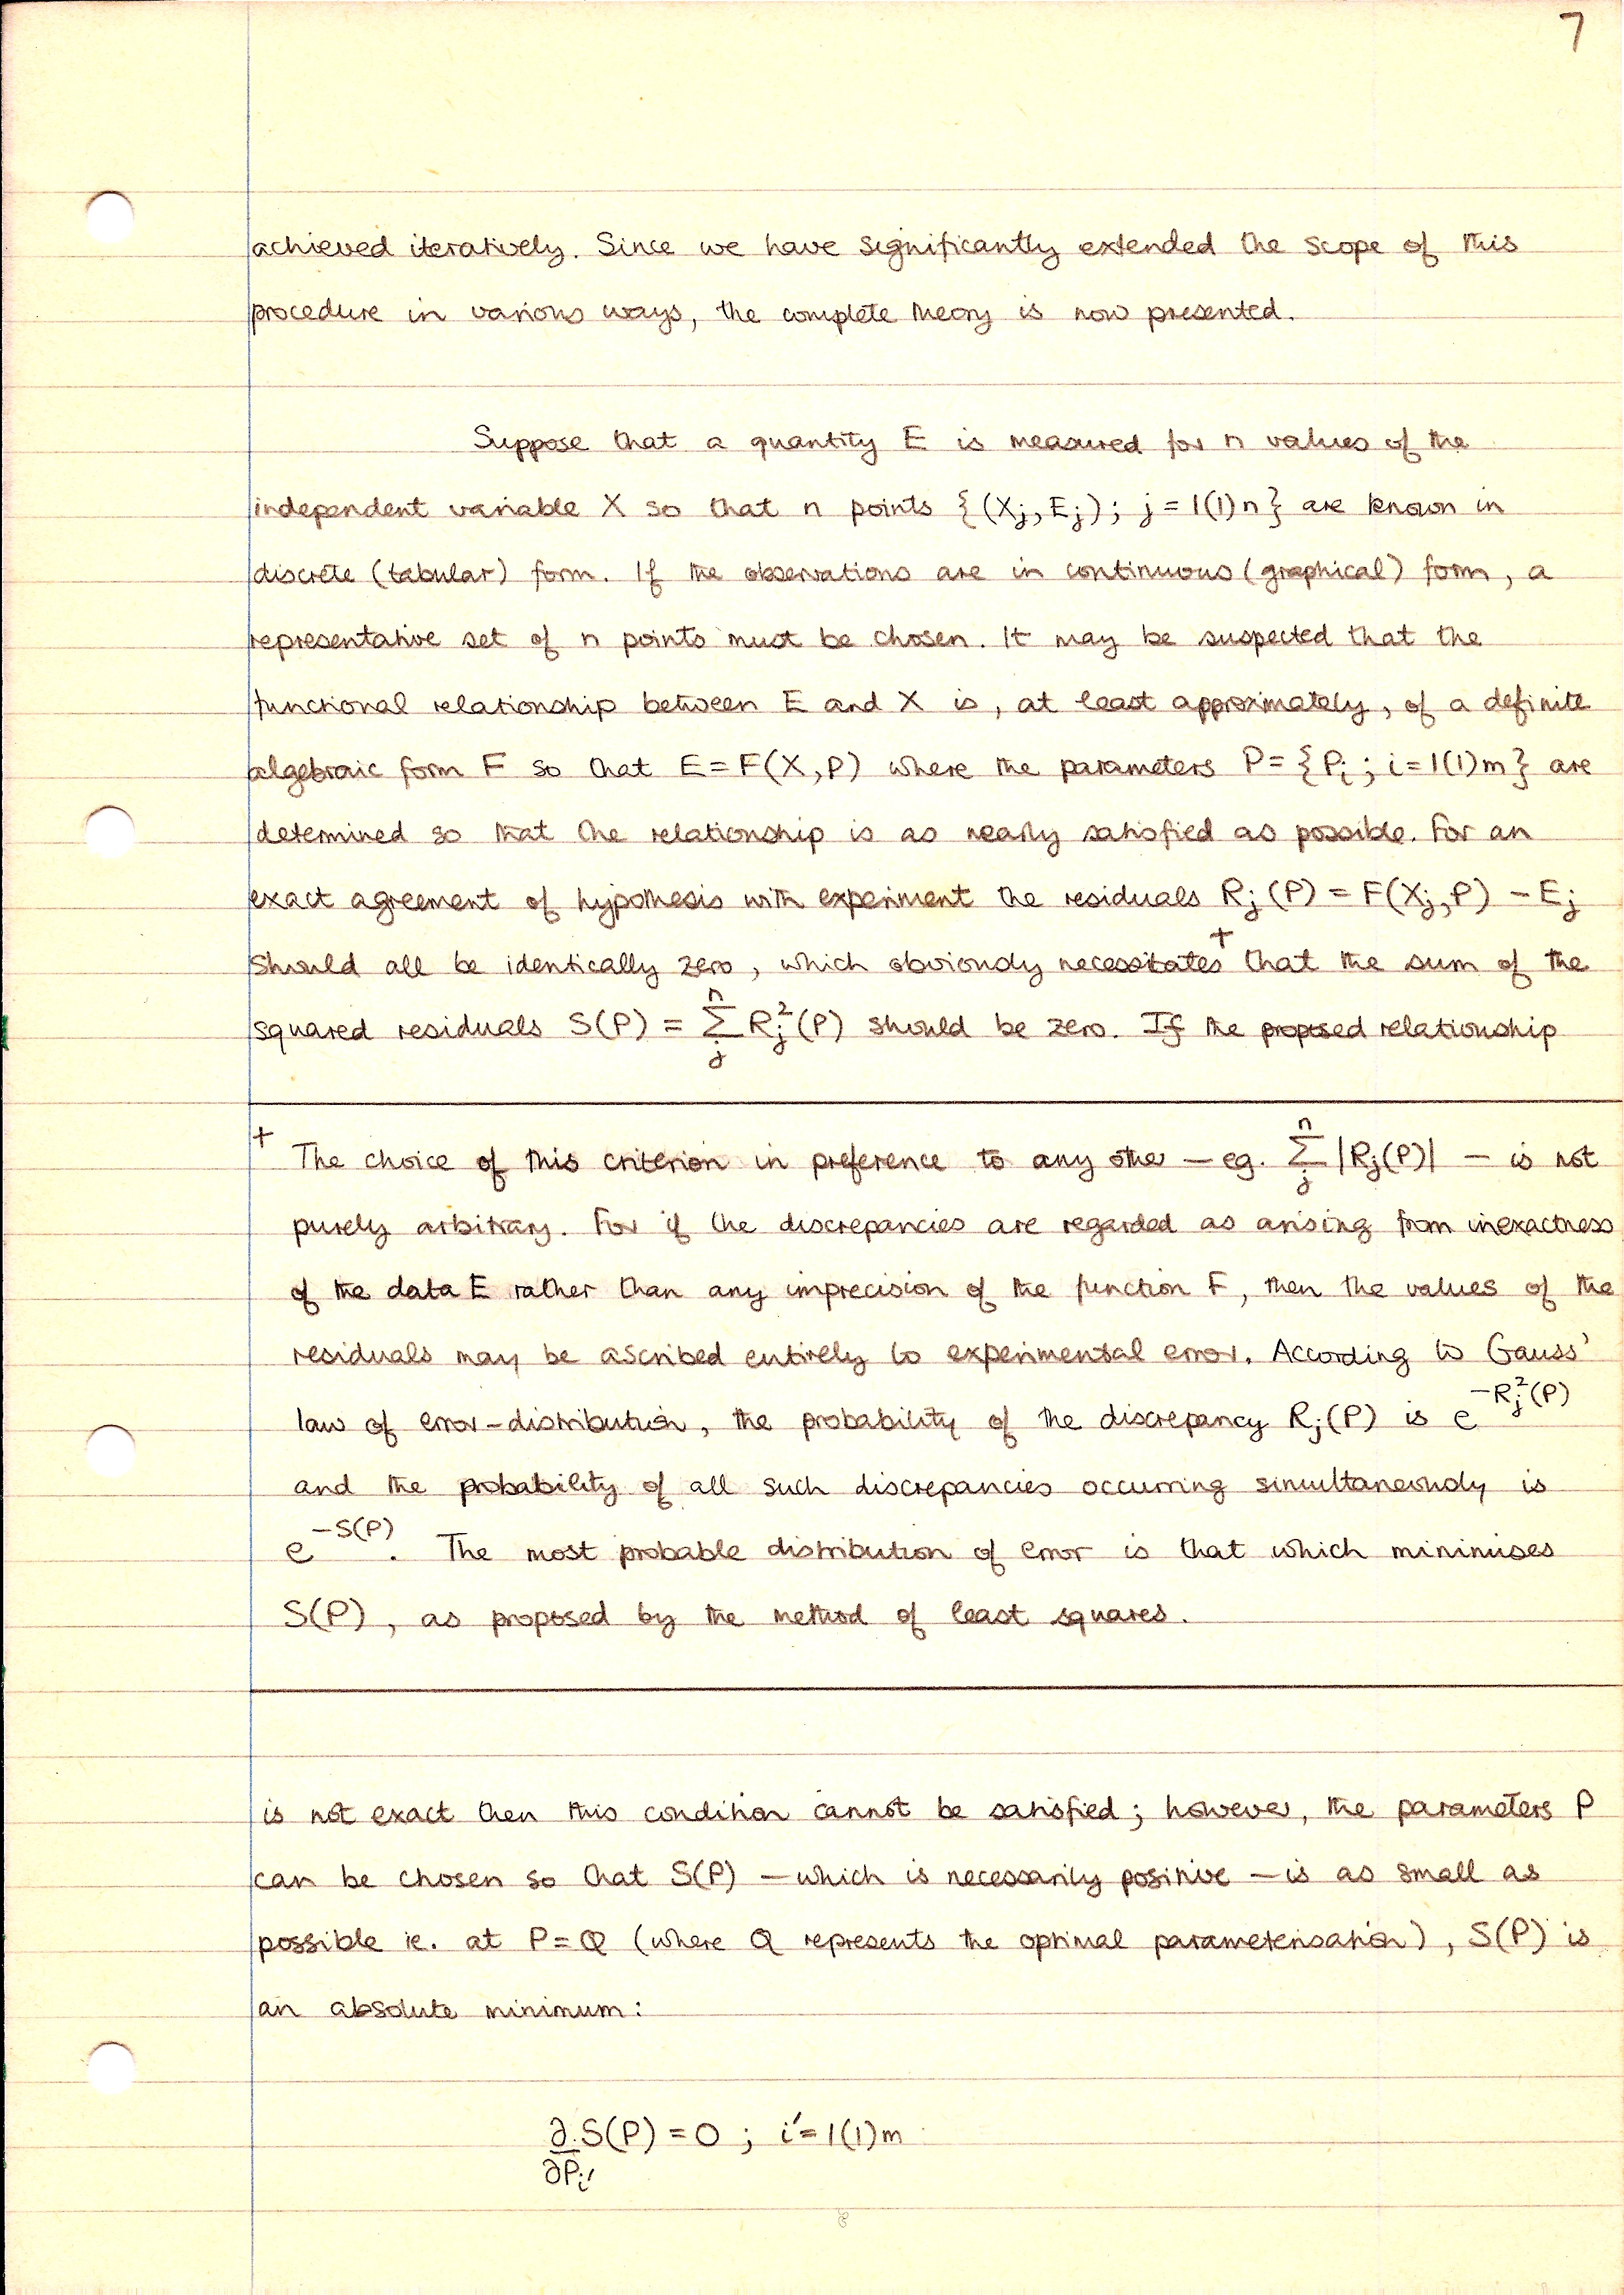 7
achieved iteratively. Since we have significantly extended the scope of this
procedure in various ways, the complete theory is now presented.
Suppose that a quantity E is measured for n values of the
independent variable X so that n points {(Xj, Ej); j = 1(1)n} are known in
discrete (tabular) form. If the observations are in continuous (graphical) form, a
representative set of n points must be chosen. It may be suspected that the
functional relationship between E and X is, at least approximately, of a definite
algebraic form F so that E = F(X, P) where the parameters P = {Pi ; i = 1(1)m} are
determined so that the relationship is as nearly satisfied as possible. For an
exact agreement of hypothesis with experiment the residuals Rj(P) = F(Xj, P) – Ej
should all be identically zero, which obviously necessitates† that the sum of the
squared residuals S(P) = Σⁿⱼ Rj²(P) should be zero. If the proposed relationship
† The choice of this criterion in preference to any other – eg. Σⁿⱼ |Rj(P)| – is not
purely arbitrary. For if the discrepancies are regarded as arising from inexactness
of the data E rather than any imprecision of the function F, then the values of the
residuals may be ascribed entirely to experimental error. According to Gauss'
law of error-distribution, the probability of the discrepancy Rj(P) is e^–Rj²(P)
and the probability of all such discrepancies occurring simultaneously is
e^–S(P). The most probable distribution of error is that which minimises
S(P), as proposed by the method of least squares.
is not exact then this condition cannot be satisfied; however, the parameters P
can be chosen so that S(P) – which is necessarily positive – is as small as
possible ie. at P = Q (where Q represents the optimal parameterisation), S(P) is
an absolute minimum:
∂/∂Pi′ . S(P) = 0 ; i′ = 1(1)m